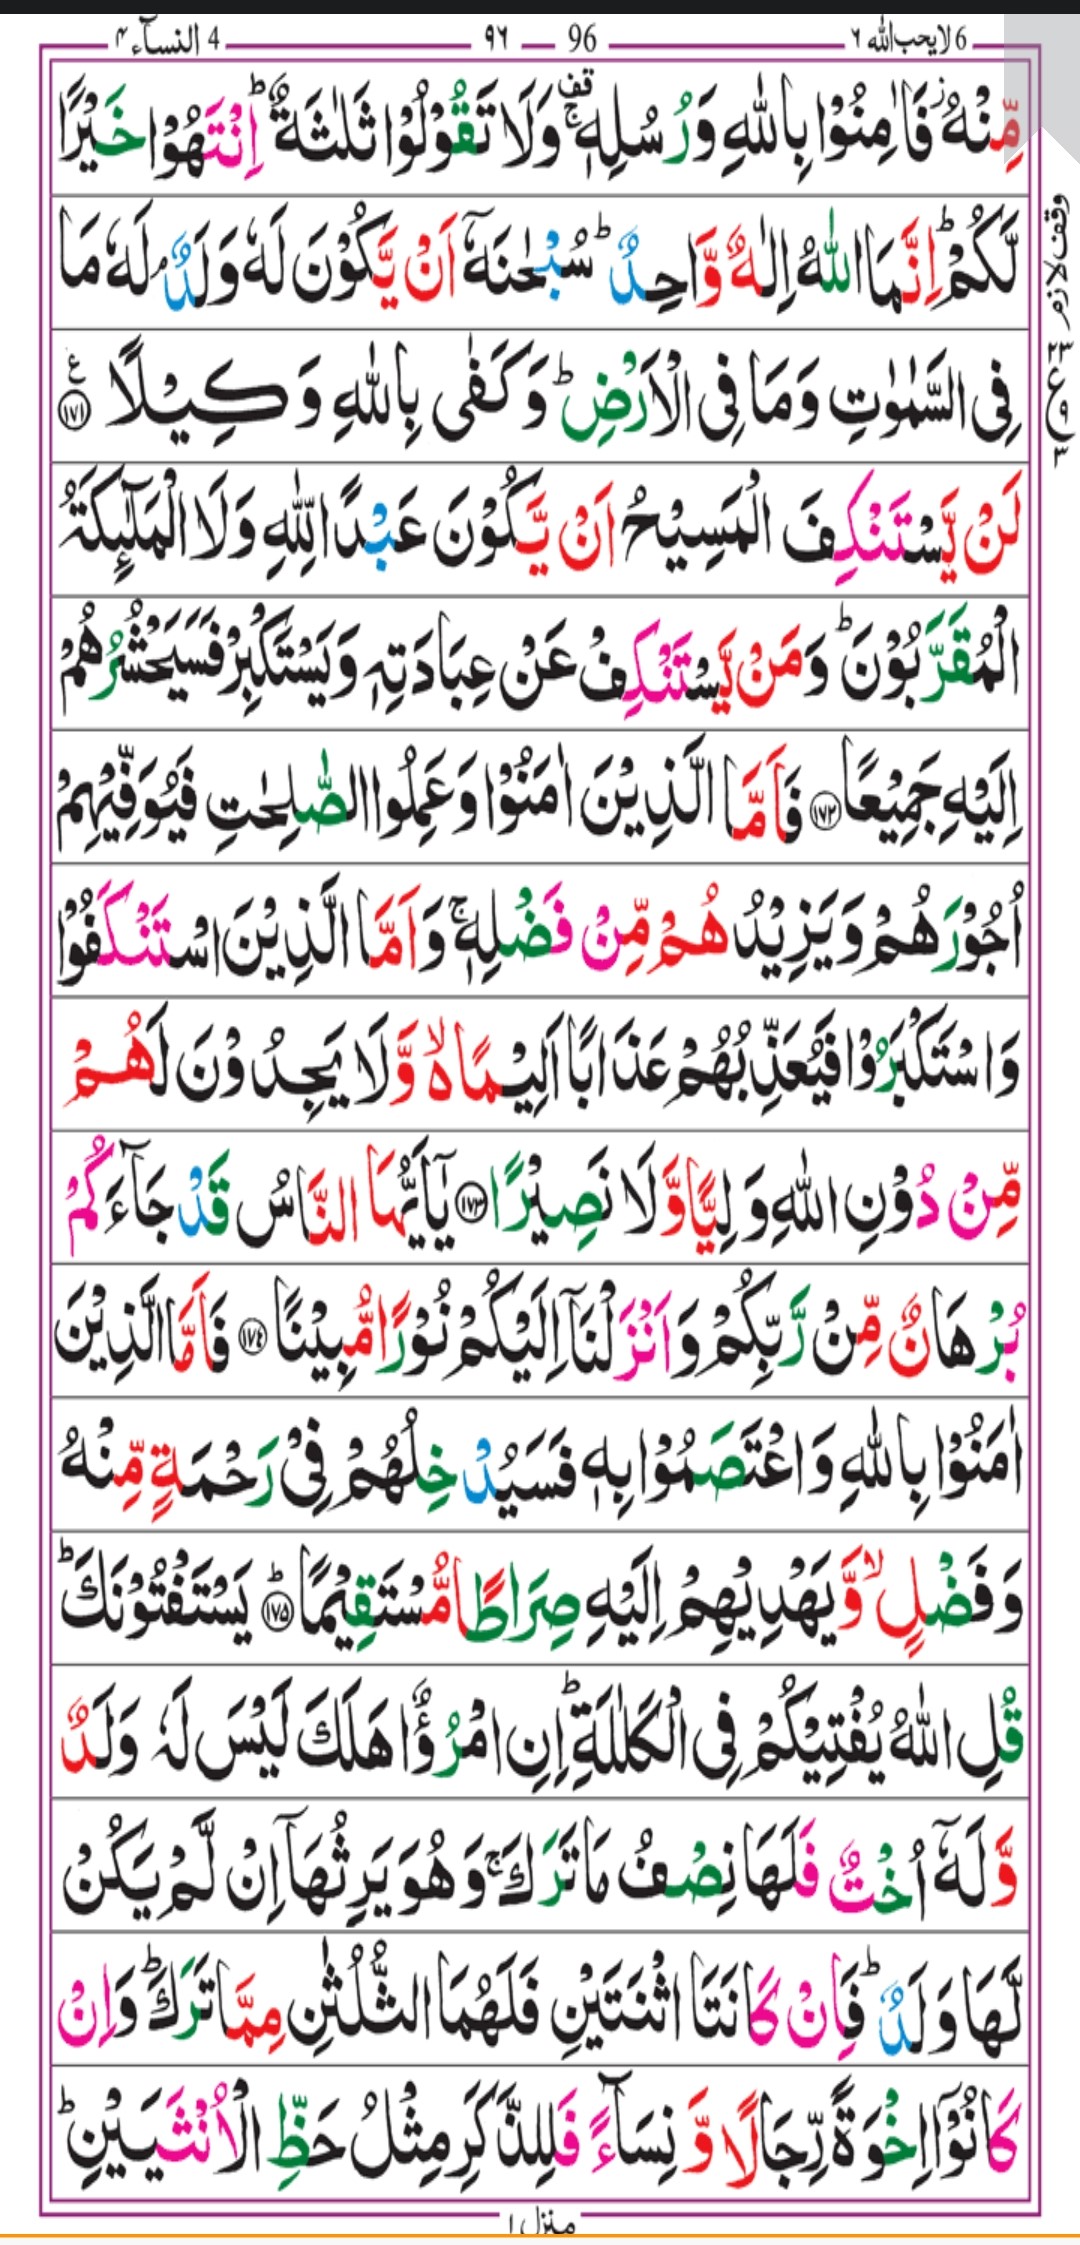 6 لا یحب اللہ ٦ 96 ٩٦ 4 النسآء ٤
مِّنْهُ ز فَاٰمِنُوْا بِاللّٰهِ وَرُسُلِهٖ قف ج وَلَا تَقُوْلُوْا ثَلٰثَةٌ ؕ اِنْتَهُوْا خَيْرًا
لَّكُمْ ؕ اِنَّمَا اللّٰهُ اِلٰهٌ وَّاحِدٌ ؕ سُبْحٰنَهٗۤ اَنْ يَّكُوْنَ لَهٗ وَلَدٌ ۘ لَهٗ مَا
فِى السَّمٰوٰتِ وَمَا فِى الْاَرْضِ ؕ وَكَفٰى بِاللّٰهِ وَكِيْلًا ع ١٧١
لَنْ يَّسْتَنْكِفَ الْمَسِيْحُ اَنْ يَّكُوْنَ عَبْدًا لِّلّٰهِ وَلَا الْمَلٰٓئِكَةُ
الْمُقَرَّبُوْنَ ؕ وَمَنْ يَّسْتَنْكِفْ عَنْ عِبَادَتِهٖ وَيَسْتَكْبِرْ فَسَيَحْشُرُهُمْ
اِلَيْهِ جَمِيْعًا ١٧٢ فَاَمَّا الَّذِيْنَ اٰمَنُوْا وَعَمِلُوا الصّٰلِحٰتِ فَيُوَفِّيْهِمْ
اُجُوْرَهُمْ وَيَزِيْدُهُمْ مِّنْ فَضْلِهٖ ۚ وَاَمَّا الَّذِيْنَ اسْتَنْكَفُوْا
وَاسْتَكْبَرُوْا فَيُعَذِّبُهُمْ عَذَابًا اَلِيْمًا ۙ۬ وَّلَا يَجِدُوْنَ لَهُمْ
مِّنْ دُوْنِ اللّٰهِ وَلِيًّا وَّلَا نَصِيْرًا ١٧٣ يٰۤاَيُّهَا النَّاسُ قَدْ جَآءَكُمْ
بُرْهَانٌ مِّنْ رَّبِّكُمْ وَاَنْزَلْنَاۤ اِلَيْكُمْ نُوْرًا مُّبِيْنًا ١٧٤ فَاَمَّا الَّذِيْنَ
اٰمَنُوْا بِاللّٰهِ وَاعْتَصَمُوْا بِهٖ فَسَيُدْخِلُهُمْ فِىْ رَحْمَةٍ مِّنْهُ
وَفَضْلٍ ۙ وَّيَهْدِيْهِمْ اِلَيْهِ صِرَاطًا مُّسْتَقِيْمًا ؕ ١٧٥ يَسْتَفْتُوْنَكَ ؕ
قُلِ اللّٰهُ يُفْتِيْكُمْ فِى الْكَلٰلَةِ ؕ اِنِ امْرُؤٌا هَلَكَ لَيْسَ لَهٗ وَلَدٌ
وَّلَهٗۤ اُخْتٌ فَلَهَا نِصْفُ مَا تَرَكَ ۚ وَهُوَ يَرِثُهَاۤ اِنْ لَّمْ يَكُنْ
لَّهَا وَلَدٌ ؕ فَاِنْ كَانَتَا اثْنَتَيْنِ فَلَهُمَا الثُّلُثٰنِ مِمَّا تَرَكَ ؕ وَاِنْ
كَانُوْۤا اِخْوَةً رِّجَالًا وَّنِسَآءً فَلِلذَّكَرِ مِثْلُ حَظِّ الْاُنْثَيَيْنِ ؕ
وقف لازم
٢٣
ع
٩
٣
منزل ١